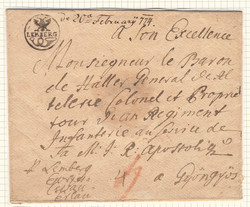 LEMBERG
de 26ten February 779.
A Son Excellence
Monseigneur le Baron
de Haller General de Al
telerie Colonel et Propriet
tour d'un Regiment
Infanterie au service de
Sa M. I. R. Apostoliq
a Gyöngyös
d'Lemberg